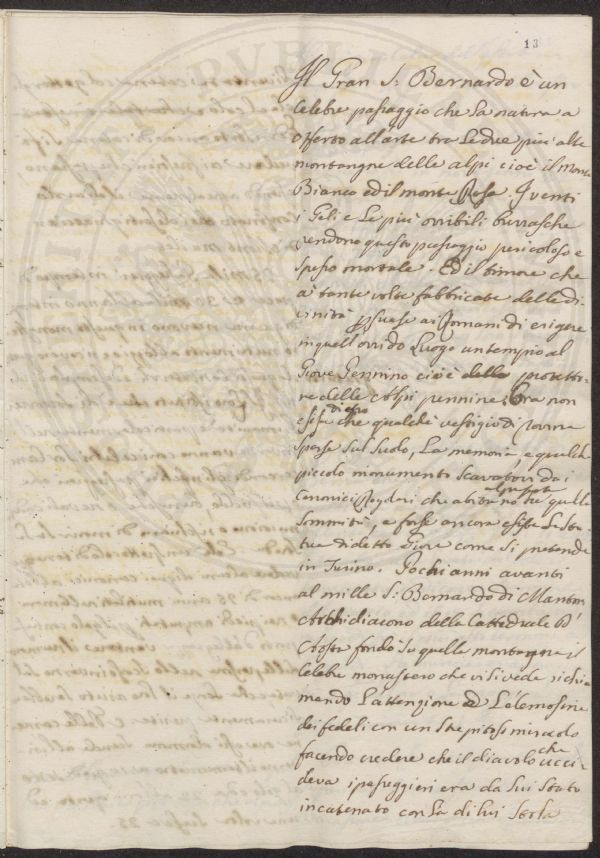 13
Il Gran S: Bernardo è un
Celebre passaggio che la natura a
offerto all'arte tra le due piu' alte
montangne delle alpi cioè il monte
Bianco ed il monte Rosa. I venti
i Geli e le piu orribili burrasche
rendono questo passaggio pericoloso e
spesso mortale. Ed il timore che
a' tante volte fabbricate delle di
vinità psuase ai Romani di erigere
in quell'orrido Luogo un tempio al
Giove Pennino cioè della protetto
re delle Alpi pennine. Ora non
esiste dietro che qualche vestigio di rovina
sparse sul suolo, la memoria, e qualche
piccolo monumento scavatovi da i
Canonici Regolari che abitano quella
Sommità, e forse ancora esiste la sta
tua di detto Giove come si pretende
in Turino. Pochi anni avanti
al mille S: Bernardo di Manton
Archidiacono della Cattedrale d'
Aosta fondò su quelle montangne il
Celebre monastero che vi si vede richia
mando l'attenzione ed l'elemosine
dei fedeli con un strepitoso miracolo
facendo credere che il diavolo che ucci
deva i passeggieri era da lui stato
incatenato con la di lui stola